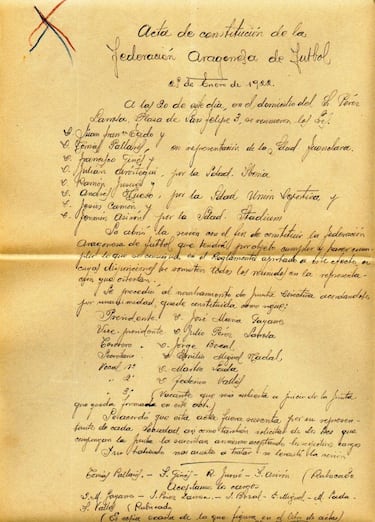 Acta de constitución de la
Federación Aragonesa de Futbol
2 de Enero de 1922.
A las 20 de este día, en el domicilio del Sr. Pérez
Larrola Plaza de San Felipe 3, se reunieron los Srs.
D. Juan Fran.co y
D. Tomás Pallarés en representación de la Sdad
D. Francisco Ginés y
D. Julián por la Sdad. Iberia
D. Ramón Jurné y
D. Andrés por la Sdad Unión Deportiva y
D. Jesús Camón y
D. Joaquín Asirón por la Sdad. Stadium
Se abrió la sesión con el fin de constituir la Federación
Aragonesa de futbol que tendrá por objeto cumplir y hacer cumplir
lo que se consigna en el Reglamento aprobado a este efecto, a
cuyas se someten todos los reunidos en la representación
que ostentan.
Se procedió al nombramiento de Junta Directiva acordándose
por unanimidad, quede constituida como sigue:
Presidente D. José María Gayarre
Vice-presidente D. Julio Pérez Larrola
Tesorero D. Jorge Bozal
Secretario D. Emilio Miguel Nadal
Vocal 1º D. Martín Lauda
" 2º D. Federico Vallés
" 3º Vacante que sea a juicio de la Junta
que queda formada en este acto.
Se acordó que esta acta fuera suscrita por un representante
de cada Sociedad así como también de los Srs que
componen la Junta la suscriban asimismo aceptando los cargos
y no habiendo más asunto a tratar se levantó la sesión
Tomás Pallarés.- F. Ginés - R. Jurné - J. Asirón (Rubricado)
Aceptamos los cargos.
J. M. Gayarre - J. Pérez Larrola - J. Bozal - E. Miguel - M. Lauda -
F. Vallés (Rubricado)
(Es copia exacta de la que figura en el libro de actas)